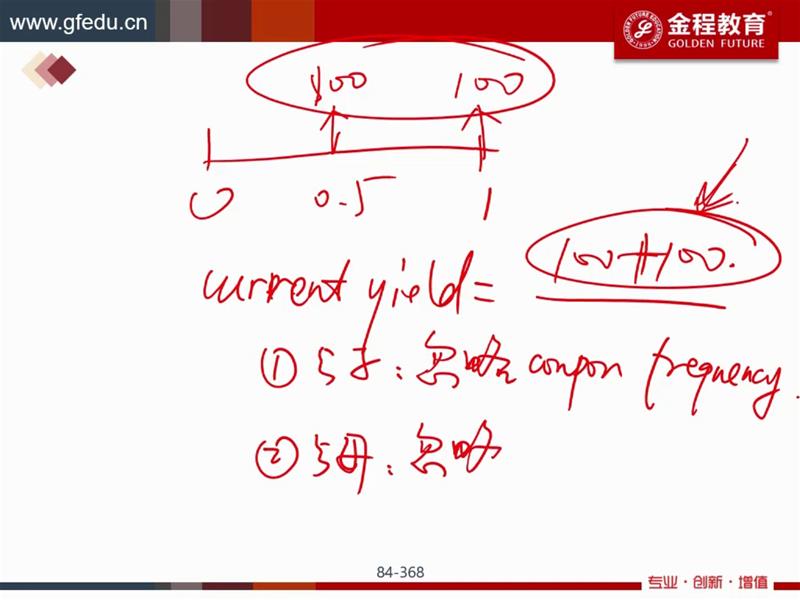 www.gfedu.cn
金程教育
GOLDEN FUTURE
100 100
0 0.5 1
100+100.
current yield=
① 分子：忽略 coupon frequency.
② 分母：忽略
84-368
专业·创新·增值